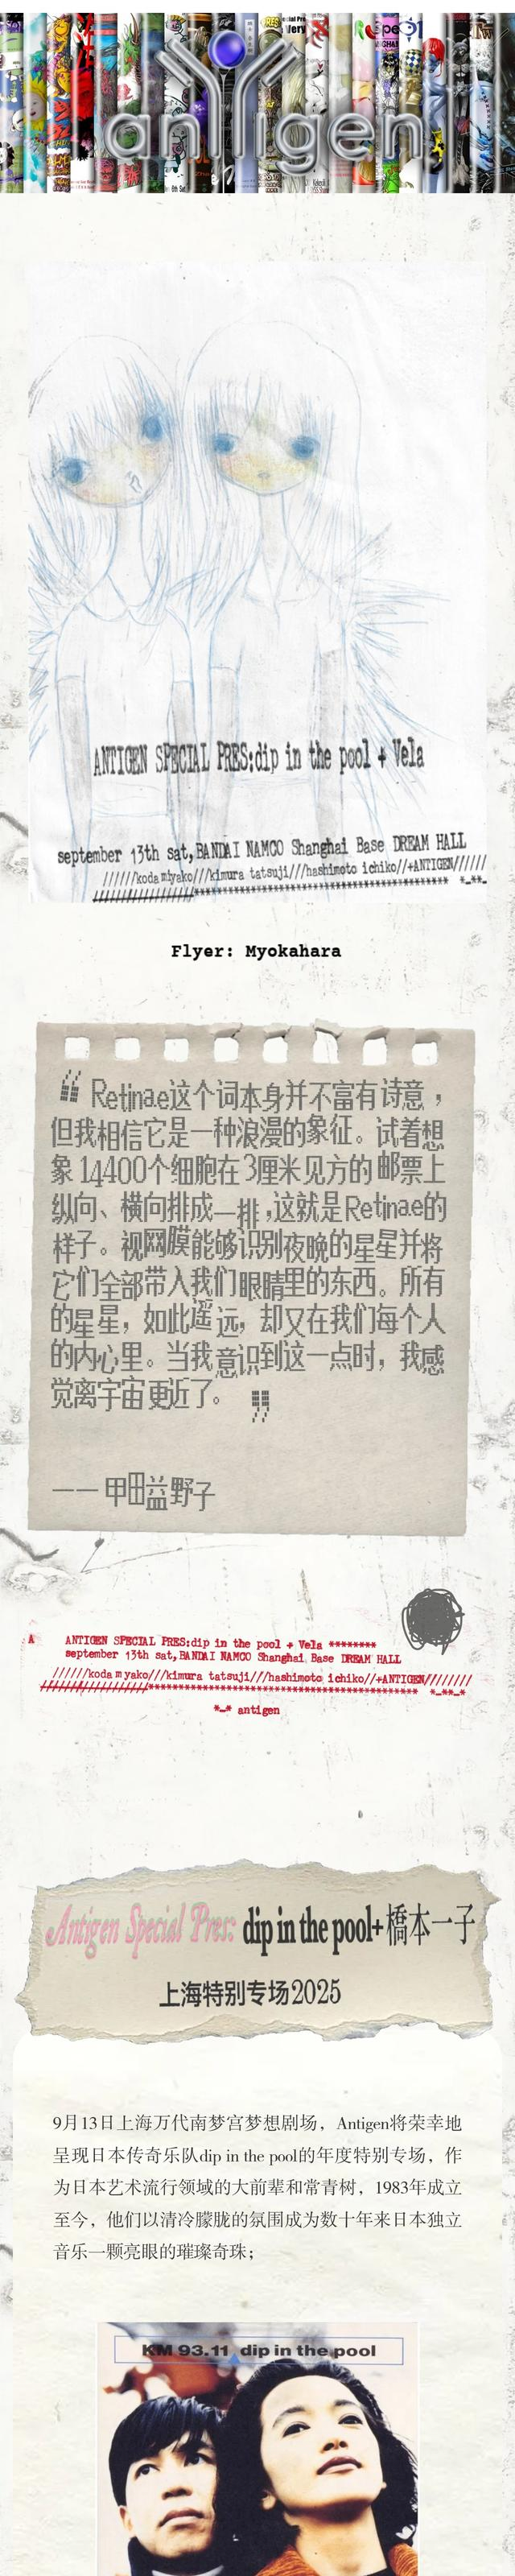 antigen
ANTIGEN SPECIAL PRES:dip in the pool + Vela
september 13th sat,BANDAI NAMCO Shanghai Base DREAM HALL
//////koda miyako///kimura tatsuji///hashimoto ichiko//+ANTIGEN//////
Flyer: Myokahara
“ Retinae这个词本身并不富有诗意，
但我相信它是一种浪漫的象征。试着想
象 14400个细胞在 3厘米见方的邮票上
纵向、横向排成一排，这就是Retinae的
样子。视网膜能够识别夜晚的星星并将
它们全部带入我们眼睛里的东西。所有
的星星，如此遥远，却又在我们每个人
的内心里。当我意识到这一点时，我感
觉离宇宙更近了。 ”
—— 甲田益野子
A ANTIGEN SPECIAL PRES:dip in the pool + Vela ********
september 13th sat,BANDAI NAMCO Shanghai Base DREAM HALL
//////koda m yako///kimura tatsuji///hashimoto ichiko//+ANTIGEN////////
*_* antigen
Antigen Special Pres: dip in the pool+橋本一子
上海特别专场2025
9月13日上海万代南梦宫梦想剧场，Antigen将荣幸地
呈现日本传奇乐队dip in the pool的年度特别专场，作
为日本艺术流行领域的大前辈和常青树，1983年成立
至今，他们以清冷朦胧的氛围成为数十年来日本独立
音乐一颗亮眼的璀璨奇珠；
KM 93.11 dip in the pool